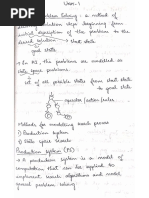 Unit-1
Problem Solving: a method of
solution steps beginning from
initial description of the problem to the
desired solution → start state
goal state
→ In AI, the problems are modelled as
state space problems
↓
set of all possible states from start state
to goal state
operator/action/rules
Methods for modelling search process
1) Production System
2) State space search
Production System (PS)
→ A production system is a model of
computation that can be applied to
implement search algorithms and model
human problem solving.